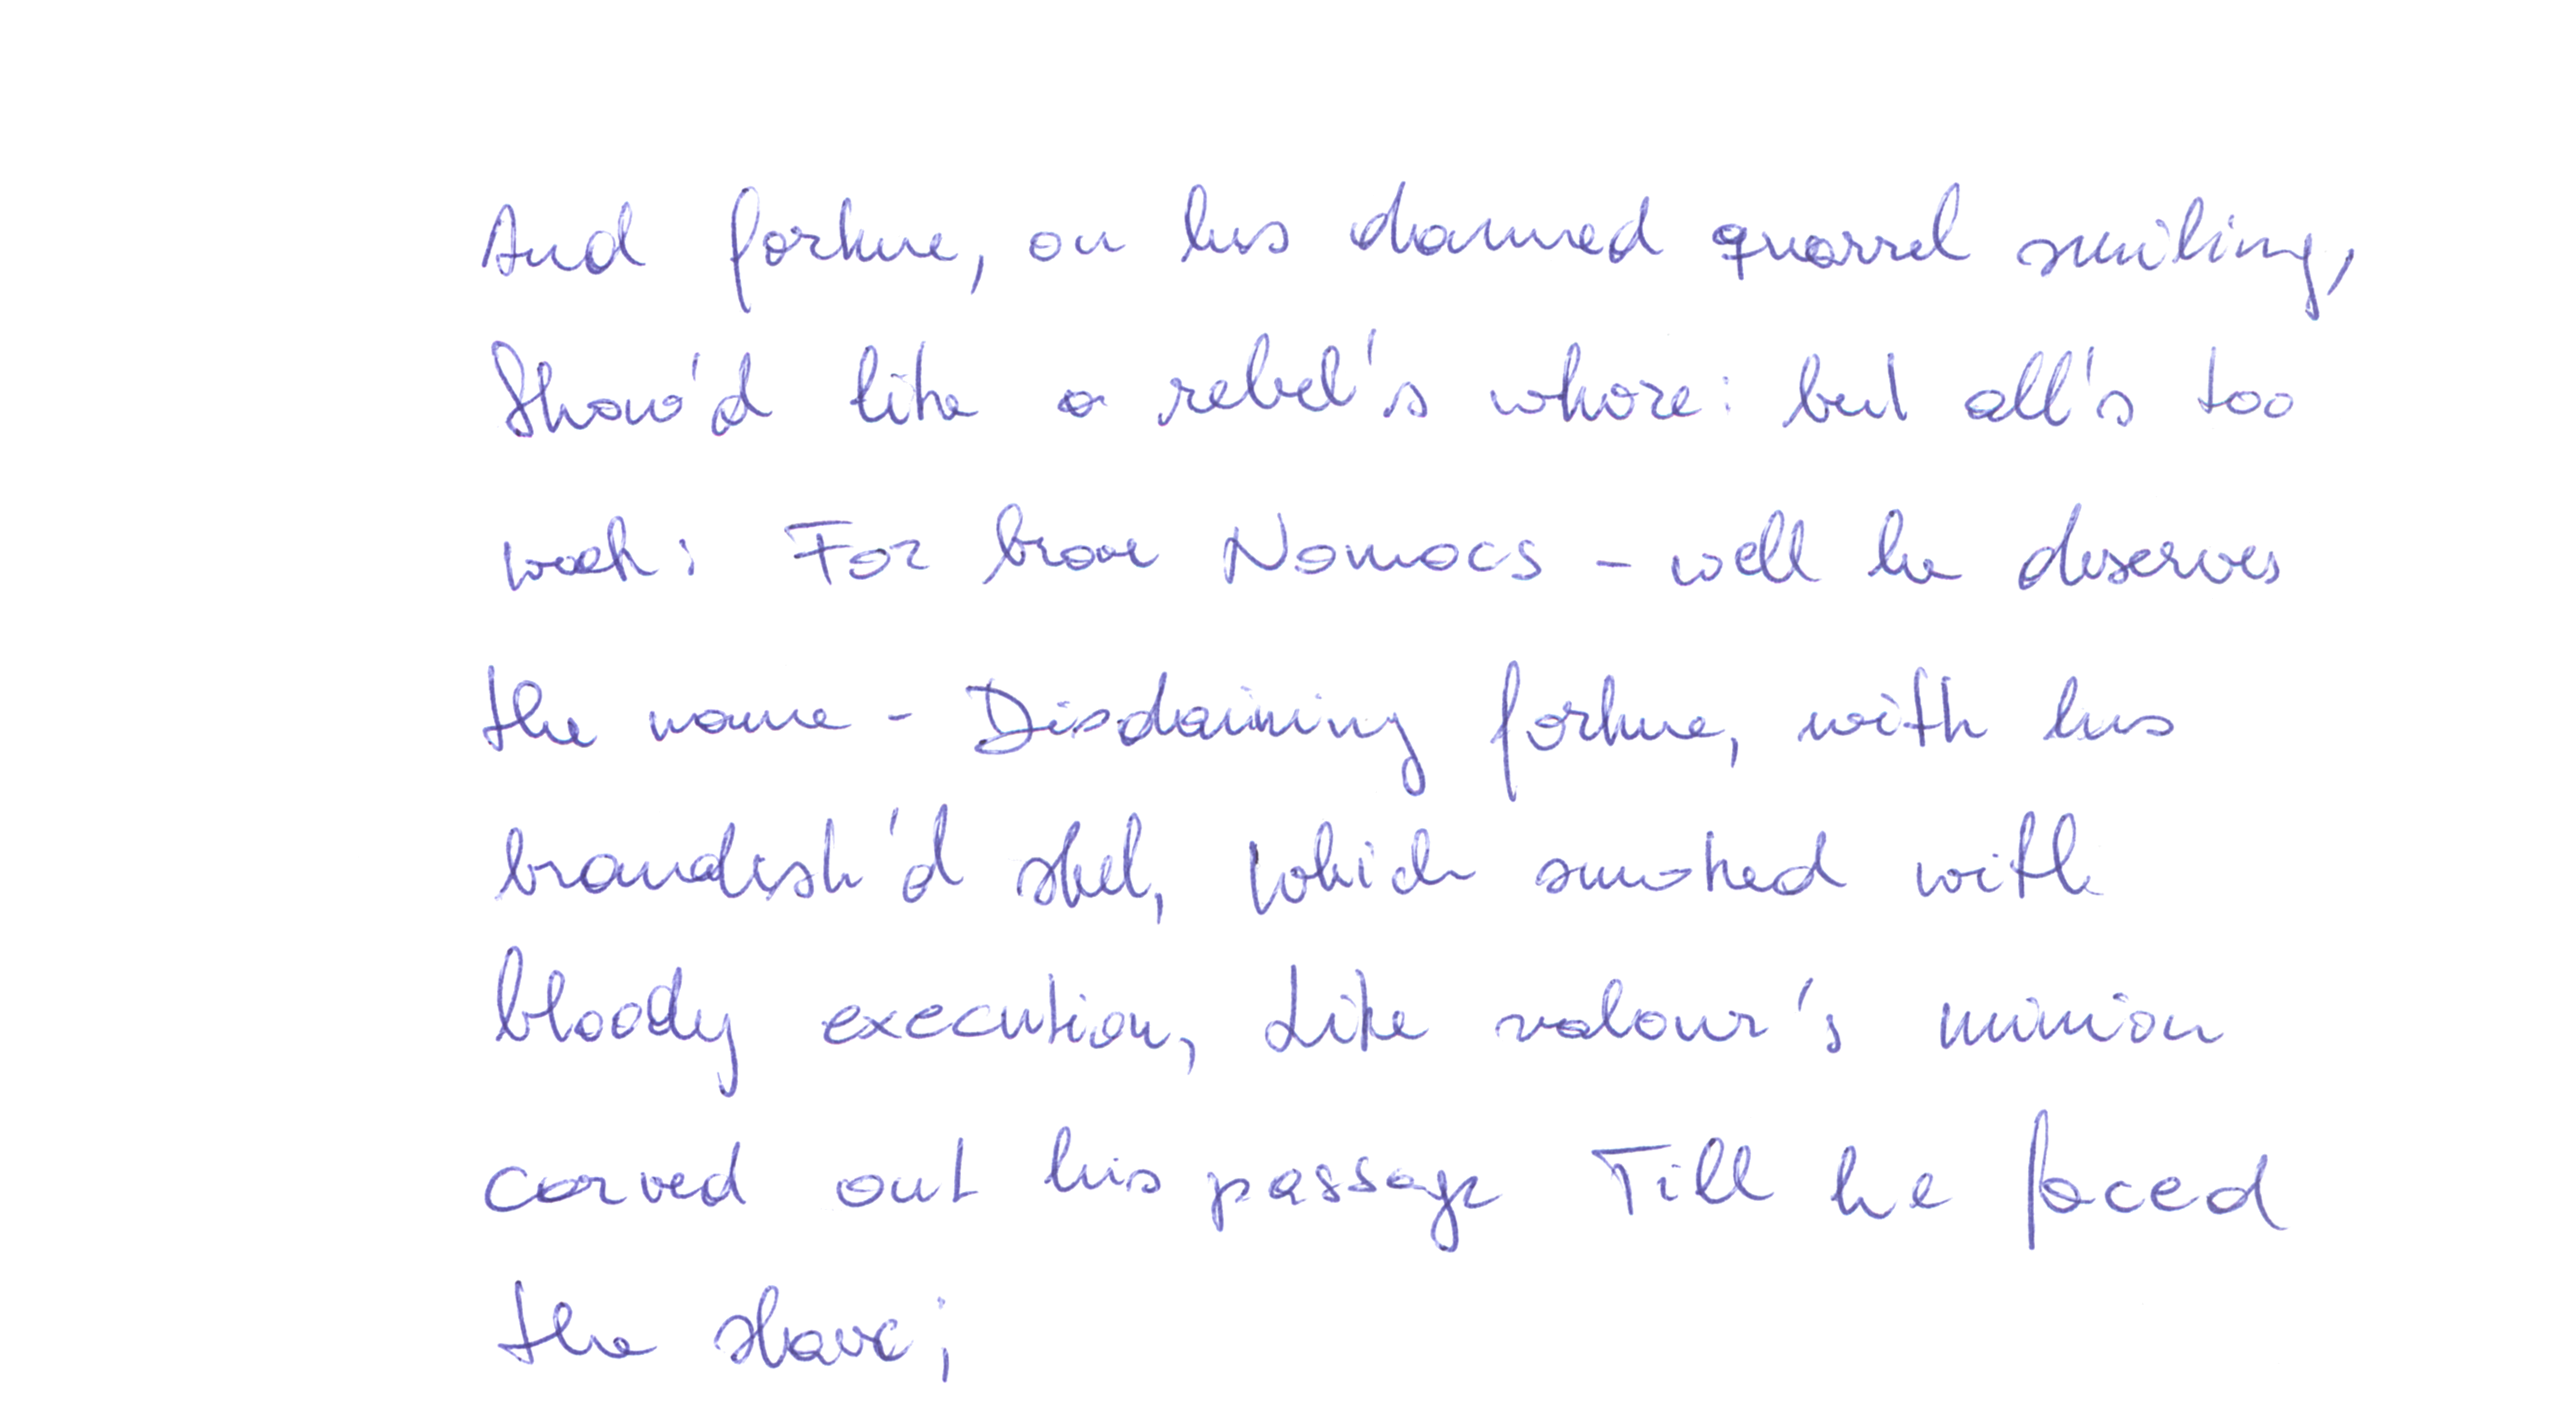 And fortune, on his damned quarrel smiling,
Show'd like a rebel's whore: but all's too
weak: For brave Nomacs - well he deserves
the name - Disdaining fortune, with his
brandish'd steel, Which smoked with
bloody execution, Like valour's minion
carved out his passage Till he faced
the slave;